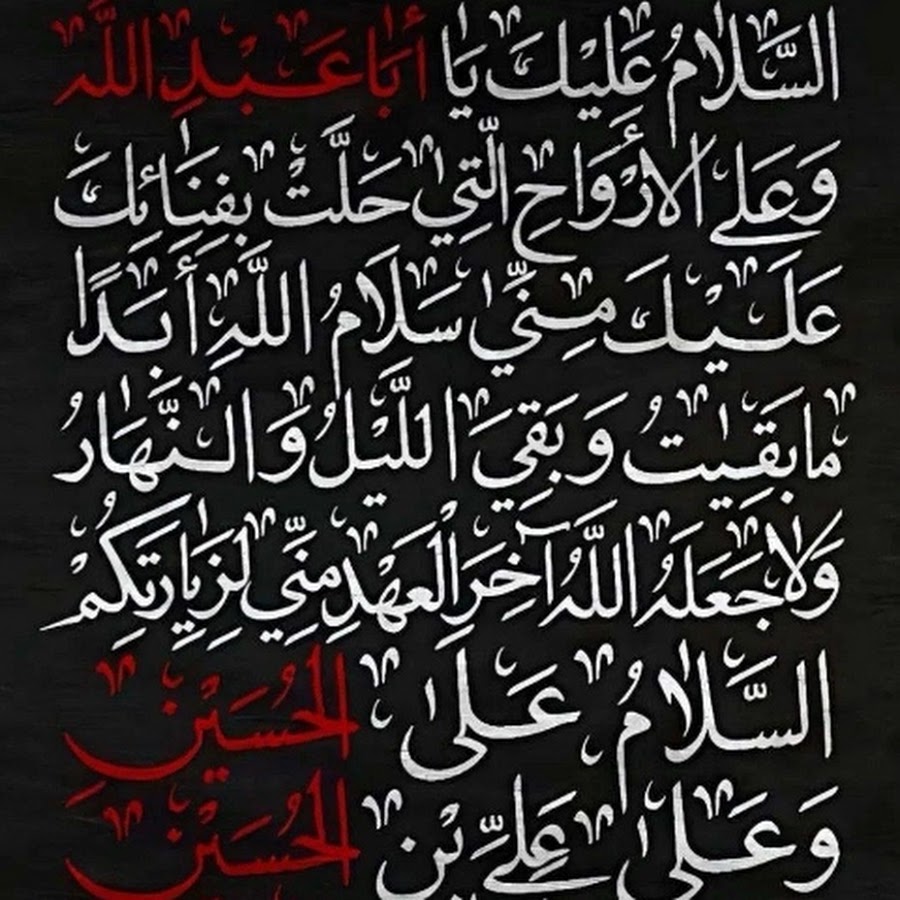 السَّلَامُ عَلَيْكَ يَا أَبَا عَبْدِ اللَّهِ
وَعَلَى الأَرْوَاحِ الَّتِي حَلَّتْ بِفِنَائِكَ
عَلَيْكَ مِنِّي سَلَامُ اللَّهِ أَبَدًا
مَا بَقِيتُ وَبَقِيَ اللَّيْلُ وَالنَّهَارُ
وَلَا جَعَلَهُ اللَّهُ آخِرَ الْعَهْدِ مِنِّي لِزِيَارَتِكُمْ
السَّلَامُ عَلَى الْحُسَيْنِ
وَعَلَى عَلِيِّ بْنِ الْحُسَيْنِ